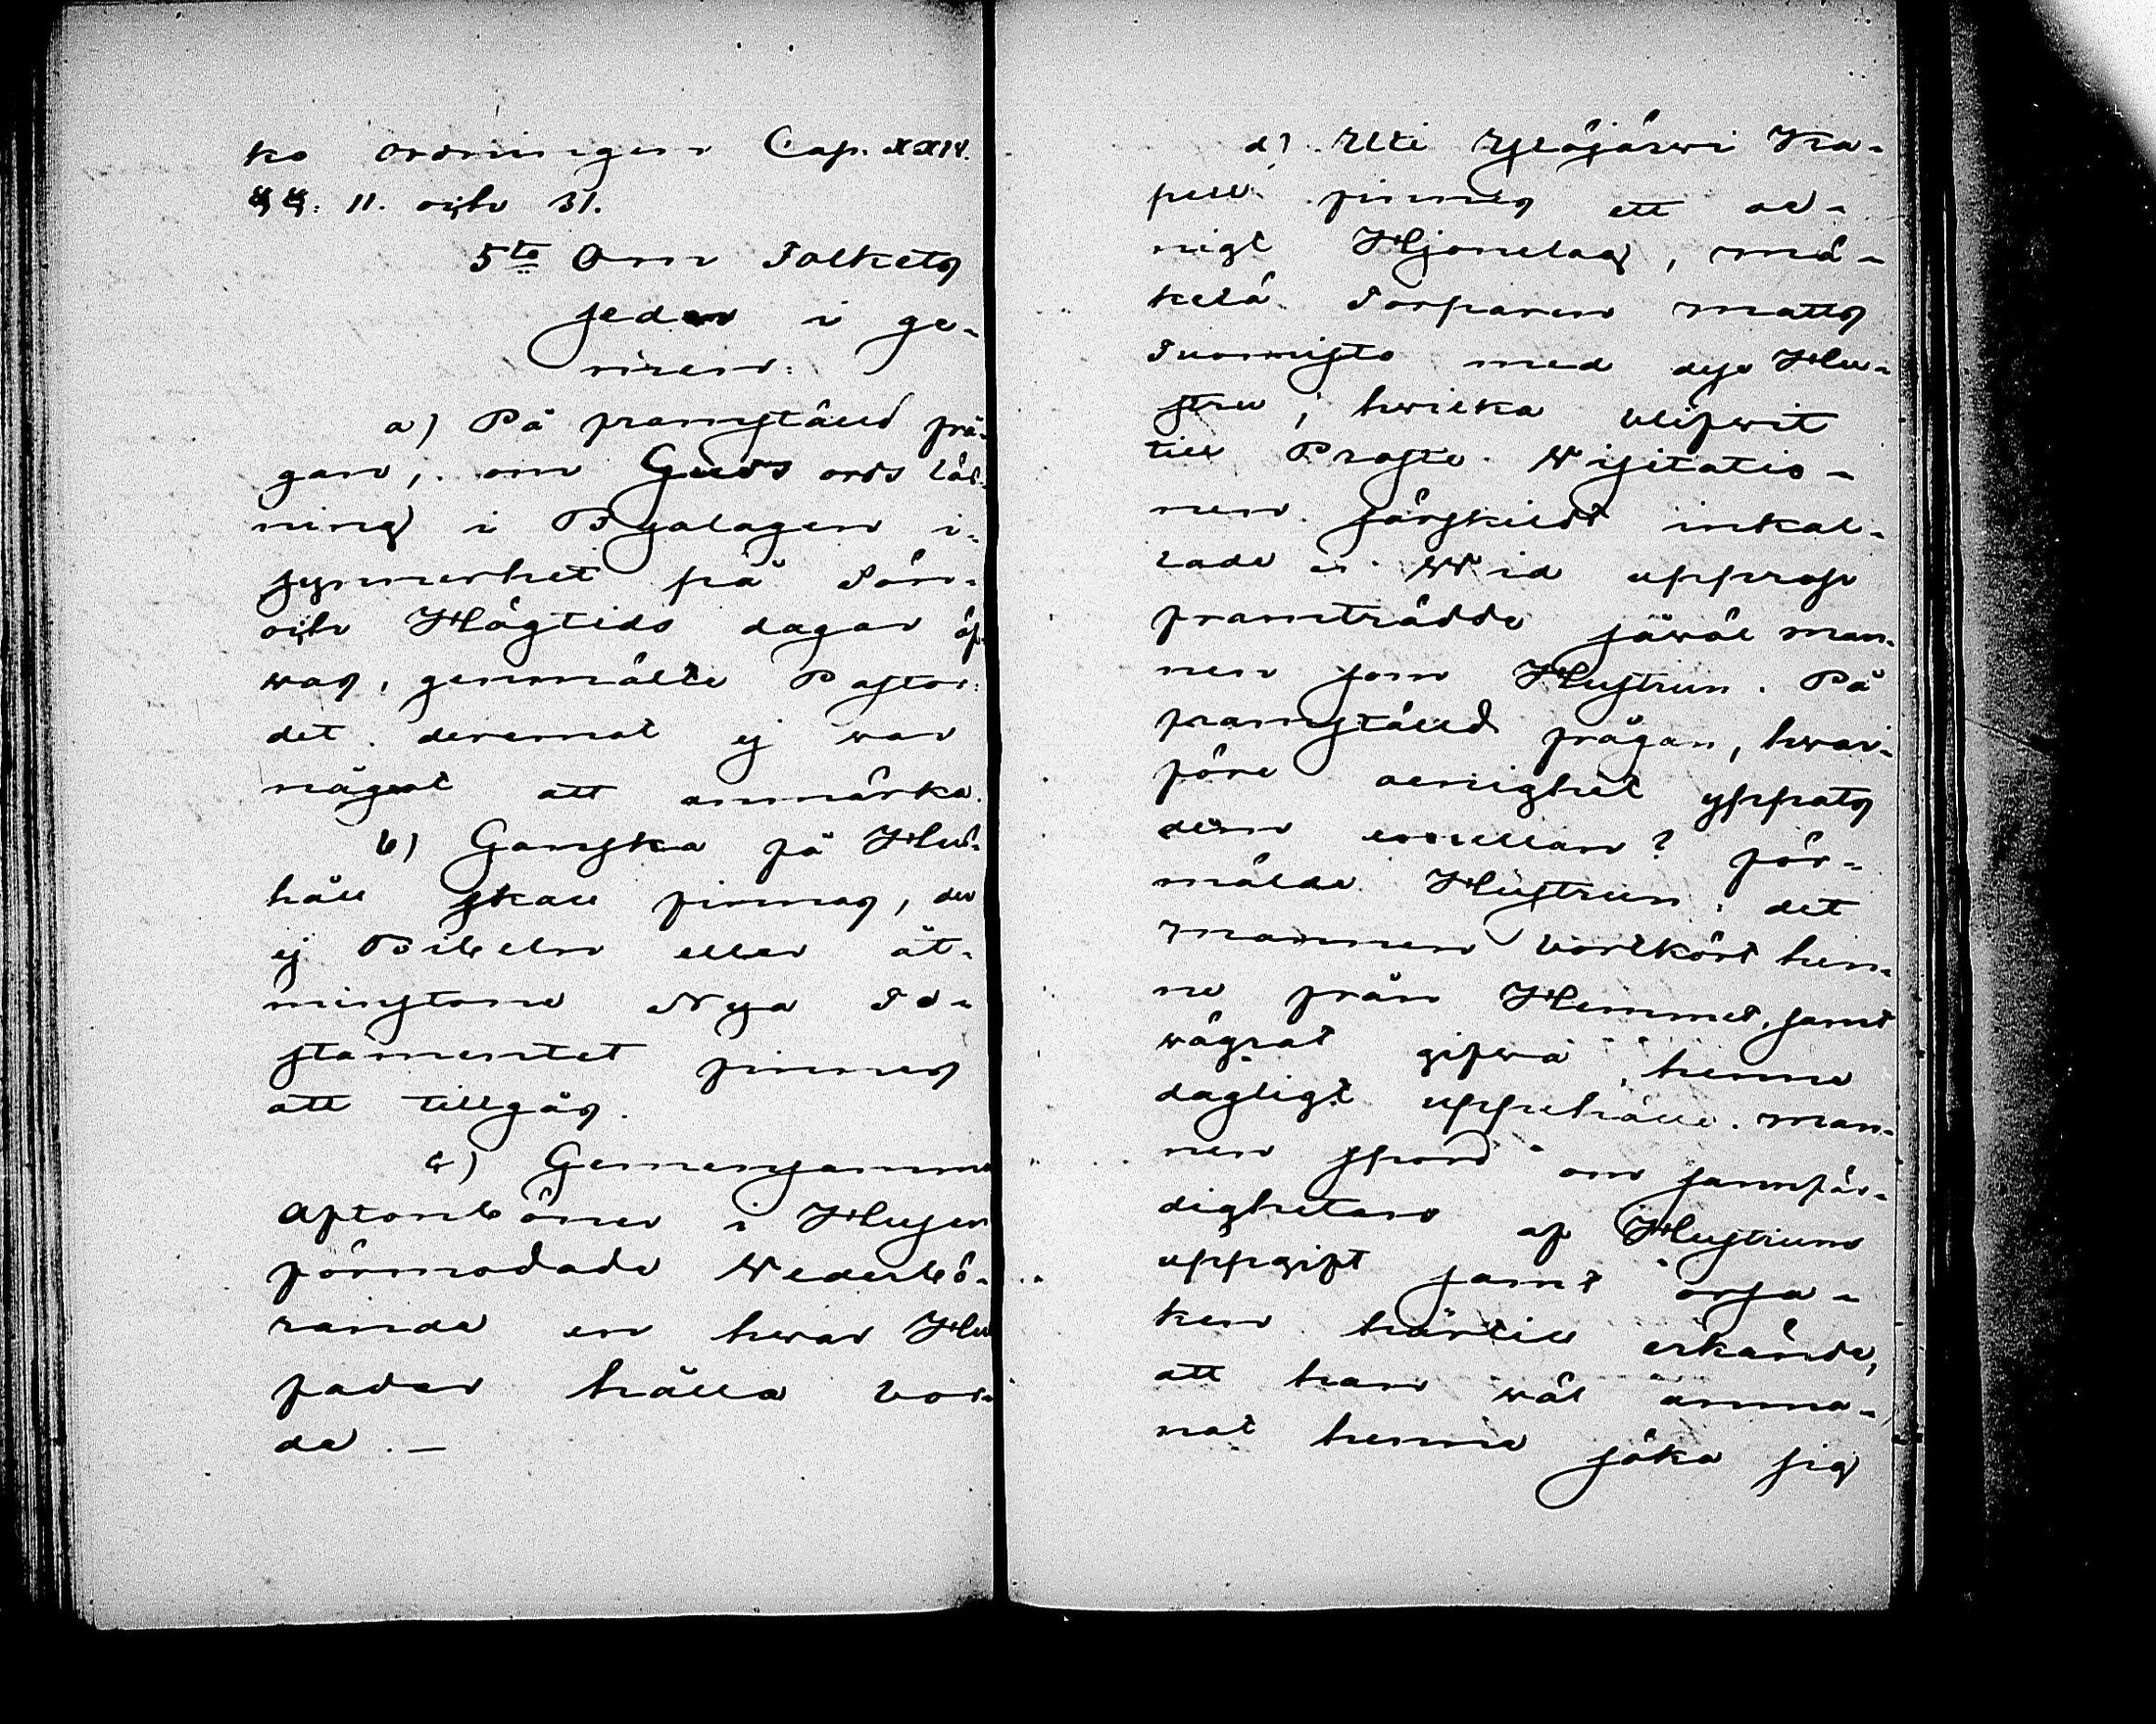 ko ordningen Cap. XXIV.
§§. 11. och 31.
5to Om Folkets
seder i ge-
meen:
a) På framstäld frå-
gan, om Guds ords läs-
ning i Byalagen i-
synnerhet på Sön-
och Högtids dagar öf-
was, genmälte Pastor:
det deremot ej war
något att anmärka.
b) Ganska få Hus-
håll skall finnas, der
ej Bibeln eller åt-
minstone Nya Te-
stamentet finnes
att tillgås.
c) Gemensamma
aftonböner i Husen
förmodade Wederbö-
rande en hwar Hus
fader hålla bor-
de. —
d) Uti Ylöjärwi Ka-
pell finnes ett oe-
nigt Hjonelag, Mä-
kelä Torparen Matts
Tuomisto med dess Hu-
stru, hwilka blifwit
till Prosts Wisitatio-
nen särskildt inkal-
lade. Wid upprop
framträdde såwäl man-
nen som Hustrun. På
framstäld frågan, hwar-
före oenighet yppats
dem emellan? för-
mälde Hustrun: det
mannen bortkört hen-
ne från Hemmet, samt
wägrat gifwa henne
dagligt uppehälle. Man-
nen spord om sannfär-
digheten af Hustruns
uppgift samt orsa-
ken härtill erkände,
att han wäl anma-
nat henne söka sig